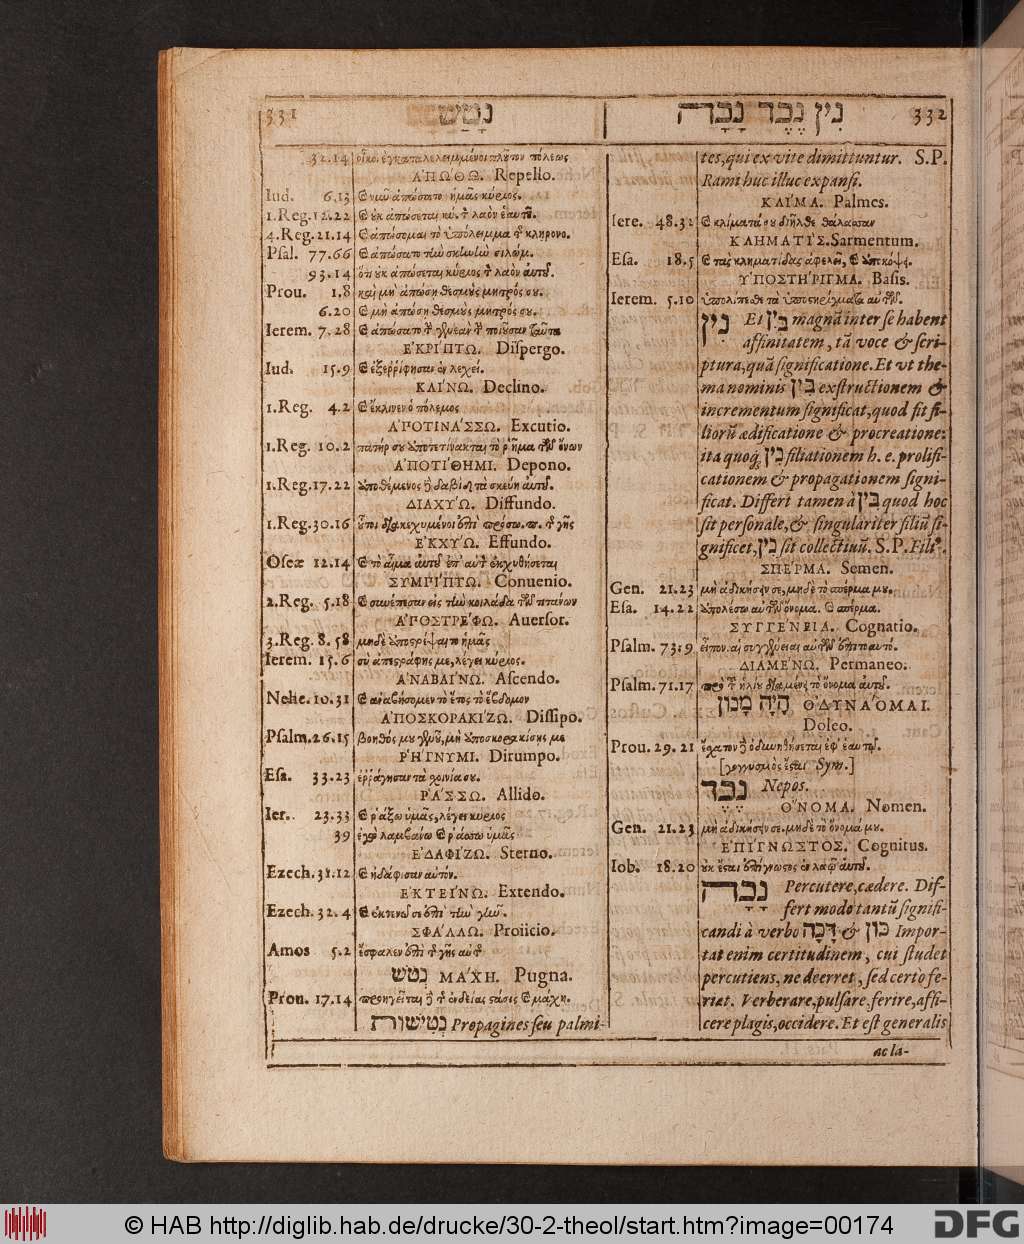 331 נָטַשׁ
נִין נֶכֶד נָכָה 332
32.14 οἶκοι ἐγκαταλελειμμένοι πλοῦτον πόλεως
ΑΠΩΘΩ. Repello.
Iud. 6.13 καὶ νῦν ἀπώσατο ἡμᾶς κύριος.
1.Reg. 12.22 καὶ οὐκ ἀπώσεται κύ. τ λαὸν ἑαυτοῦ.
4.Reg. 21.14 καὶ ἀπώσομαι τὸ ὑπόλειμμα τ κληρονο.
Psal. 77.66 καὶ ἀπώσατο τὴν σκηνὴν σιλώμ.
93.14 ὅτι οὐκ ἀπώσεται κύριος τ λαὸν αὐτοῦ.
Prou. 1.8 καὶ μὴ ἀπώσῃ θεσμοὺς μητρός σου.
6.20 καὶ μὴ ἀπώσῃ θεσμοὺς μητρός σου.
Ierem. 7.28 καὶ ἀπώσατο τ γενεὰν τ ποιοῦσαν ταῦτα
ΕΚΡΙΠΤΩ. Dispergo.
Iud. 15.9 καὶ ἐξερρίφησαν ἐν λεχεί.
ΚΛΙΝΩ. Declino.
1.Reg. 4.2 καὶ ἔκλινεν ὁ πόλεμος
ΑΠΟΤΙΝΑΣΣΩ. Excutio.
1.Reg. 10.2 πατήρ σου ἀποτετίνακται τὸ ῥῆμα τῶν ὄνων
ΑΠΟΤΙΘΗΜΙ. Depono.
1.Reg. 17.22 ἀποθέμενος δαβὶδ τὰ σκεύη αὐτοῦ.
ΔΙΑΧΥΩ. Diffundo.
1.Reg. 30.16 οὗτοι διακεχυμένοι ἐπὶ πρόσω.π. τ γῆς
ΕΚΧΥΩ. Effundo.
Oseæ 12.14 καὶ τὸ αἷμα αὐτοῦ ἐπ᾽ αὐτὸν ἐκχυθήσεται
ΣΥΜΠΙΠΤΩ. Conuenio.
2.Reg. 5.18 καὶ συνέπεσαν εἰς τὴν κοιλάδα τῶν τιτάνων
ΑΠΟΣΤΡΕΦΩ. Auersor.
3.Reg. 8.58 μηδὲ ἀποστρέψαιτο ἡμᾶς
Ierem. 15.6 σὺ ἀπεστράφης με, λέγει κύριος.
ΑΝΑΒΑΙΝΩ. Ascendo.
Nehe. 10.31 καὶ ἀναβήσομεν τὸ ἔτος τὸ ἕβδομον
ΑΠΟΣΚΟΡΑΚΙΖΩ. Dissipo.
Psalm. 26.15 βοηθός μου γενοῦ, μὴ ἀποσκορακίσῃς με
ΡΗΓΝΥΜΙ. Dirumpo.
Esa. 33.23 ἐρράγησαν τὰ σχοινία σου.
ΡΑΣΣΩ. Allido.
Ier. 23.33 καὶ ῥάξω ὑμᾶς, λέγει κύριος
39 ἐγὼ λαμβάνω καὶ ῥάσσω ὑμᾶς
ΕΔΑΦΙΖΩ. Sterno.
Ezech. 31.12 καὶ ἠδάφισαν αὐτόν.
ΕΚΤΕΙΝΩ. Extendo.
Ezech. 32.4 καὶ ἐκτενῶ σε ἐπὶ τὴν γῆν.
ΣΦΑΛΛΩ. Proiicio.
Amos 5.2 ἔσφαλεν ἐπὶ τ γῆς αὐτ
נְטֹשׁ ΜΑΧΗ. Pugna.
Prou. 17.14 προηγεῖται τ ἐνδείας στάσις καὶ μάχη.
נְטִישׁוֹת Propagines seu palmi-
tes, qui ex vite dimittuntur. S.P.
Rami huc illuc expansi.
ΚΛΙΜΑ. Palmes.
Iere. 48.32 καὶ κλίματά σου διῆλθε θάλασσαν
ΚΛΗΜΑΤΙΣ. Sarmentum.
Esa. 18.5 καὶ τὰς κληματίδας ἀφελεῖ, καὶ ἀποκόψ.
ΥΠΟΣΤΗΡΙΓΜΑ. Basis.
Ierem. 5.10 ὑπολίπεσθε τὰ ὑποστηρίγματα αὐτῶν.
נִין Et בִּין magnã inter se habent
affinitatem, tã voce & scri-
ptura, quã significatione. Et vt the-
ma nominis בִּין exstructionem &
incrementum significat, quod sit fi-
liorũ ædificatione & procreatione:
ita quoq; נִין filiationem h. e. prolifi-
cationem & propagationem signi-
ficat. Differt tamen à בִּין quod hoc
sit personale, & singulariter filiũ si-
gnificet, נִין sit collectiuũ. S.P. Filiꝰ.
ΣΠΕΡΜΑ. Semen.
Gen. 21.23 μὴ ἀδικήσειν σε, μηδὲ τὸ σπέρμα μου.
Esa. 14.22 ἀπολέσω αὐτῶν ὄνομα. καὶ σπέρμα.
ΣΥΓΓΕΝΕΙΑ. Cognatio.
Psalm. 73.9 εἶπον. αἱ συγγένειαι αὐτῶν ἐπὶ τὸ αυτό.
ΔΙΑΜΕΝΩ. Permaneo.
Psalm. 71.17 πρὸ τ ἡλίου διαμένει τὸ ὄνομα αὐτοῦ.
הָיָה מָנוֹן ΟΔΥΝΑΟΜΑΙ.
Doleo.
Prou. 29.21 ἔσχατον ὀδυνηθήσεται ἐφ᾽ ἑαυτῷ.
[γογγυσμὸς ἔσται Sym.]
נֶכֶד Nepos.
ΟΝΟΜΑ. Nomen.
Gen. 21.23 μὴ ἀδικήσειν σε. μηδὲ τὸ ὄνομά μου.
ΕΠΙΓΝΩΣΤΟΣ. Cognitus.
Iob. 18.20 οὐκ ἔσται ἐπίγνωστος ἐν λαῷ αὐτοῦ.
נָכָה Percutere, cædere. Dif-
fert modo tantũ signifi-
candi à verbo דָּכָה & כּוּן Impor-
tat enim certitudinem, cui studet
percutiens, ne deerret, sed certo fe-
riat. Verberare, pulsare, ferire, affi-
cere plagis, occidere. Et est generalis
ac la-
© HAB http://diglib.hab.de/drucke/30-2-theol/start.htm?image=00174
DFG